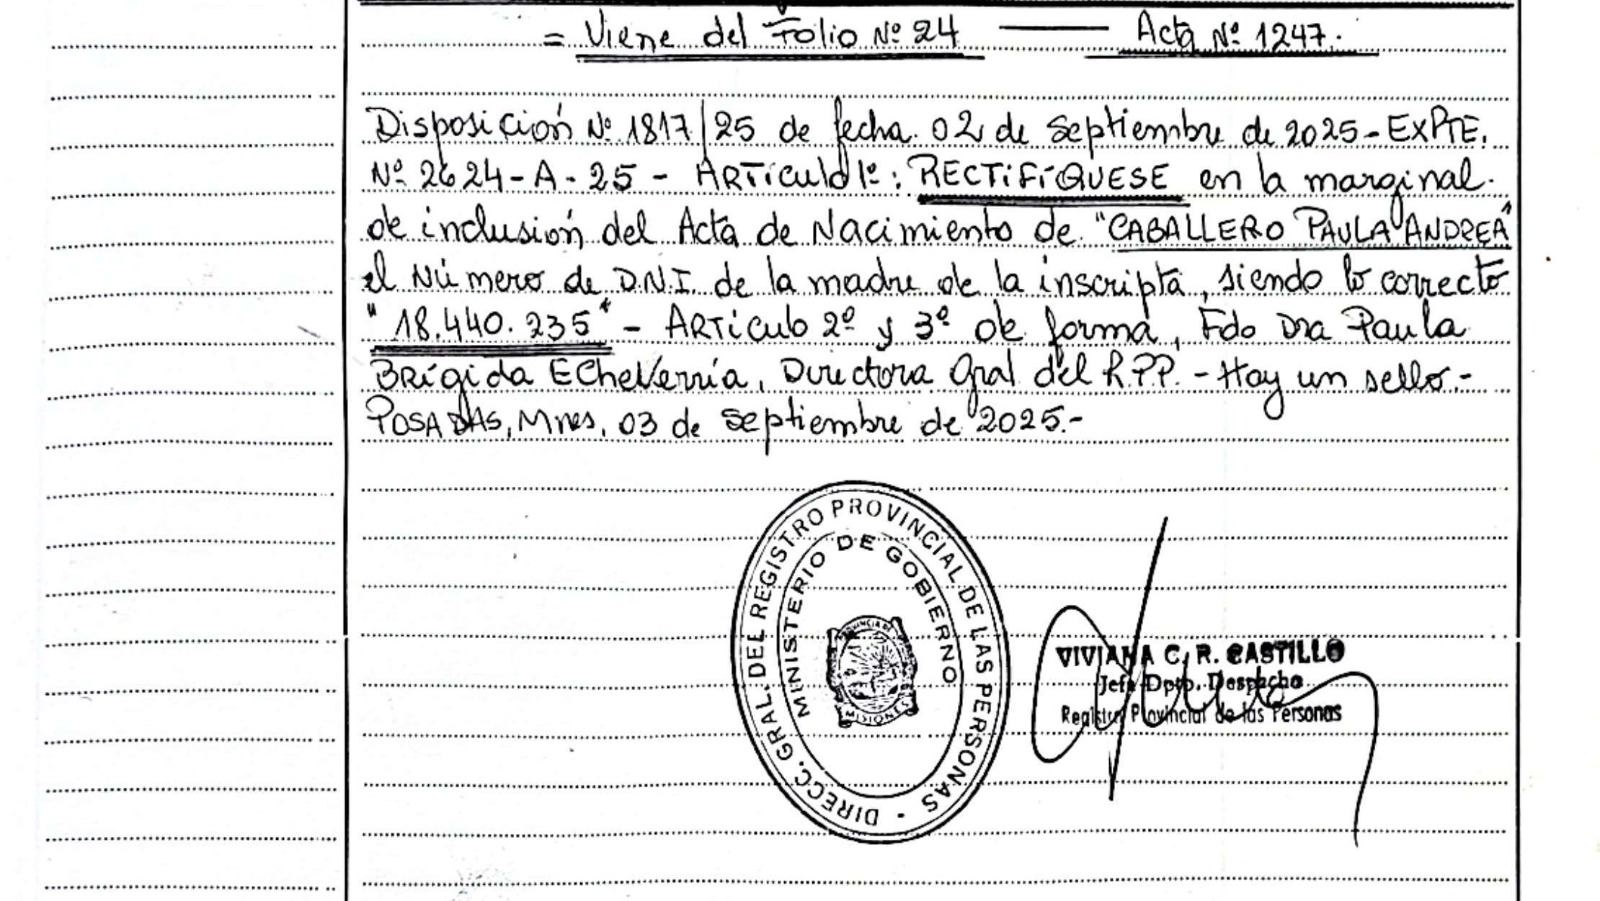 = Viene del Folio Nº 24 —— Acta Nº 1247.
Disposición Nº 1817/25 de fecha 02 de septiembre de 2025 - EXPTE.
Nº 2624-A-25 - ARTículo 1º: RECTIFÍQUESE en la marginal
de inclusión del Acta de Nacimiento de "CABALLERO PAULA ANDREA"
el Número de D.N.I. de la madre de la inscripta, siendo lo correcto
"18.440.235" - ARTículo 2º y 3º de forma, Fdo Dra Paula
Brígida ECheVerría, Directora Gral del R.P.P. - Hay un sello.-
POSADAS, Mnes, 03 de septiembre de 2025.-
DIRECC. GRAL. DEL REGISTRO PROVINCIAL DE LAS PERSONAS
MINISTERIO DE GOBIERNO
PROVINCIA DE
MISIONES
VIVIANA C. R. CASTILLO
Jefa Dpto. Despacho
Registro Provincial de las Personas